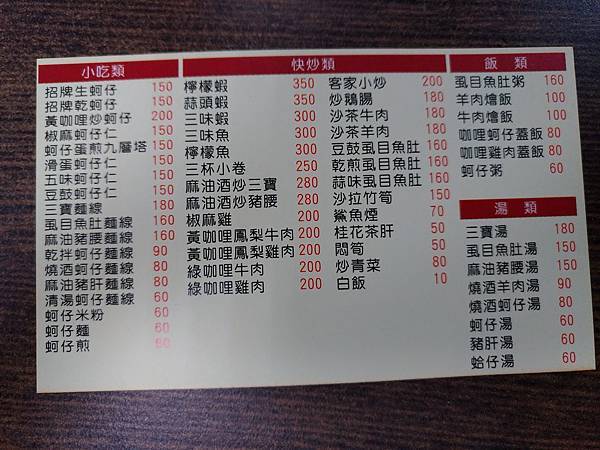 小吃類
招牌生蚵仔 150
招牌乾蚵仔 150
黃咖哩炒蚵仔 200
椒麻蚵仔仁 150
蚵仔蛋煎九層塔 150
滑蛋蚵仔仁 150
五味蚵仔仁 150
豆鼓蚵仔仁 150
三寶麵線 180
虱目魚肚麵線 160
麻油豬腰麵線 160
乾拌蚵仔麵線 90
燒酒蚵仔麵線 80
麻油豬肝麵線 80
清湯蚵仔麵線 80
蚵仔米粉 60
蚵仔麵 60
蚵仔煎
快炒類
檸檬蝦 350
蒜頭蝦 350
三味蝦 300
三味魚 300
檸檬魚 300
三杯小卷 250
麻油酒炒三寶 280
麻油酒炒豬腰 280
椒麻雞 200
黃咖哩鳳梨牛肉 200
黃咖哩鳳梨雞肉 200
綠咖哩牛肉 200
綠咖哩雞肉 200
客家小炒 200
炒鵝腸 180
沙茶牛肉 180
沙茶羊肉 180
豆鼓虱目魚肚 160
乾煎虱目魚肚 160
蒜味虱目魚肚 160
沙拉竹筍 150
鯊魚煙 70
桂花茶肝 50
悶筍 50
炒青菜 80
白飯 10
飯類
虱目魚肚粥 160
羊肉燴飯 100
牛肉燴飯 100
咖哩蚵仔蓋飯 80
咖哩雞肉蓋飯 80
蚵仔粥 60
湯類
三寶湯 180
虱目魚肚湯 150
麻油豬腰湯 150
燒酒羊肉湯 90
燒酒蚵仔湯 80
蚵仔湯 60
豬肝湯 60
蛤仔湯 60